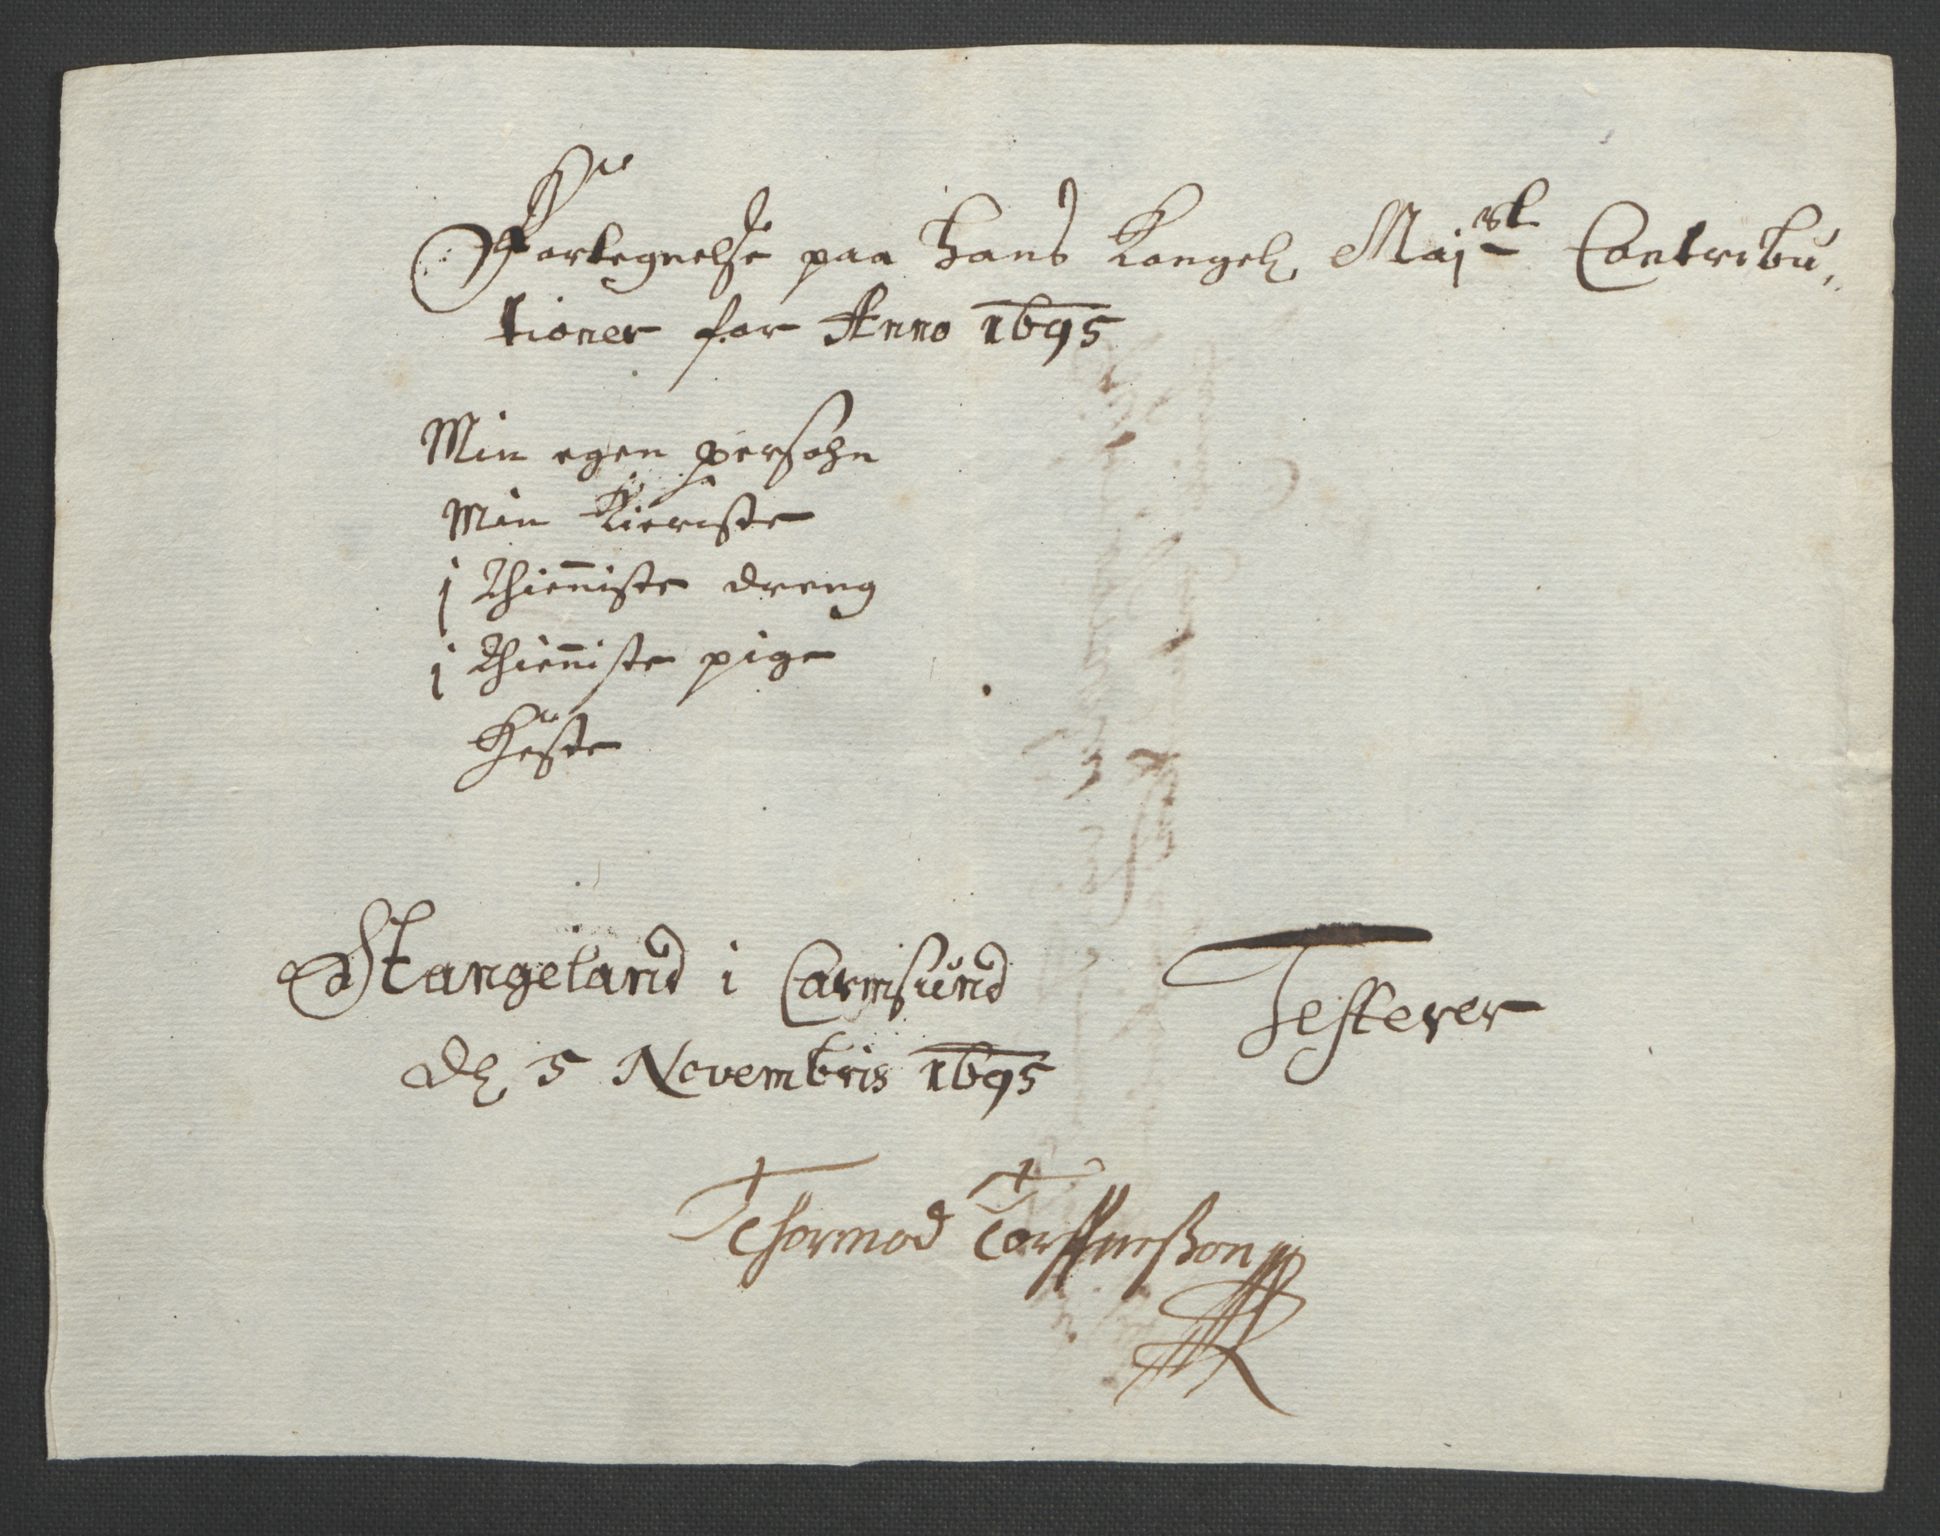 Fortegnelse paa hans Kongel Maj:st Contribu„
tioner for Anno 1695
Min egen persohn
Min Kieriste
1 Thienniste dreng
1 Thienniste pige
Heste
Stangeland i Carmsund
dh 5 Novembris 1695
Testerer
Thormod Torffuesson